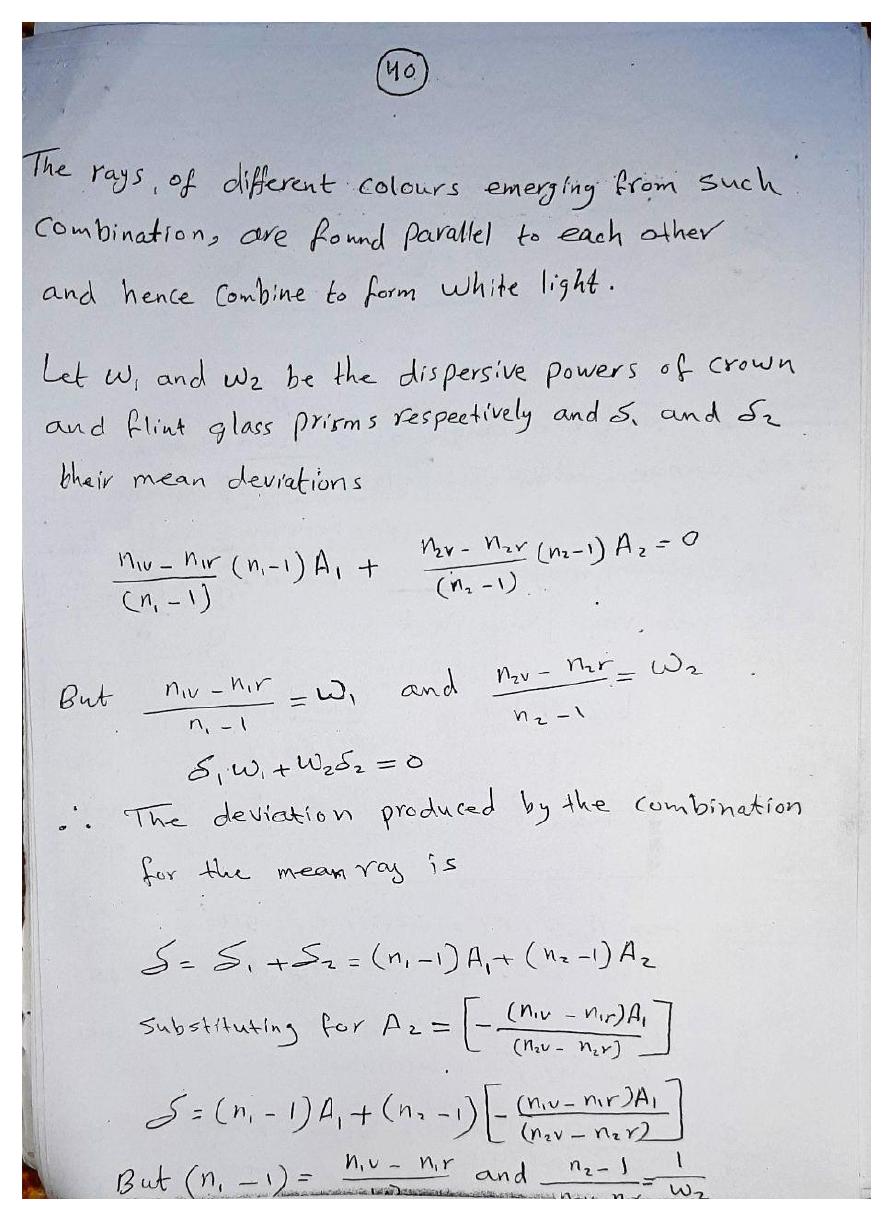 40
The rays, of different colours emerging from such
Combination, are found parallel to each other
and hence Combine to form white light.
Let ω₁ and ω₂ be the dispersive powers of crown
and flint glass prisms respectively and δ₁ and δ₂
their mean deviations
(n₁v - n₁r)/(n₁-1) (n₁-1) A₁ + (n₂v - n₂r)/(n₂-1) (n₂-1) A₂ = 0
But (n₁v - n₁r)/(n₁-1) = ω₁ and (n₂v - n₂r)/(n₂-1) = ω₂
δ₁ω₁ + ω₂δ₂ = 0
∴ The deviation produced by the combination
for the mean ray is
δ = δ₁ + δ₂ = (n₁-1) A₁ + (n₂-1) A₂
Substituting for A₂ = [- (n₁v - n₁r)A₁/(n₂v - n₂r)]
δ = (n₁-1) A₁ + (n₂-1) [- (n₁v - n₁r)A₁/(n₂v - n₂r)]
But (n₁-1) = n₁v - n₁r and n₂-1 = 1/ω₂